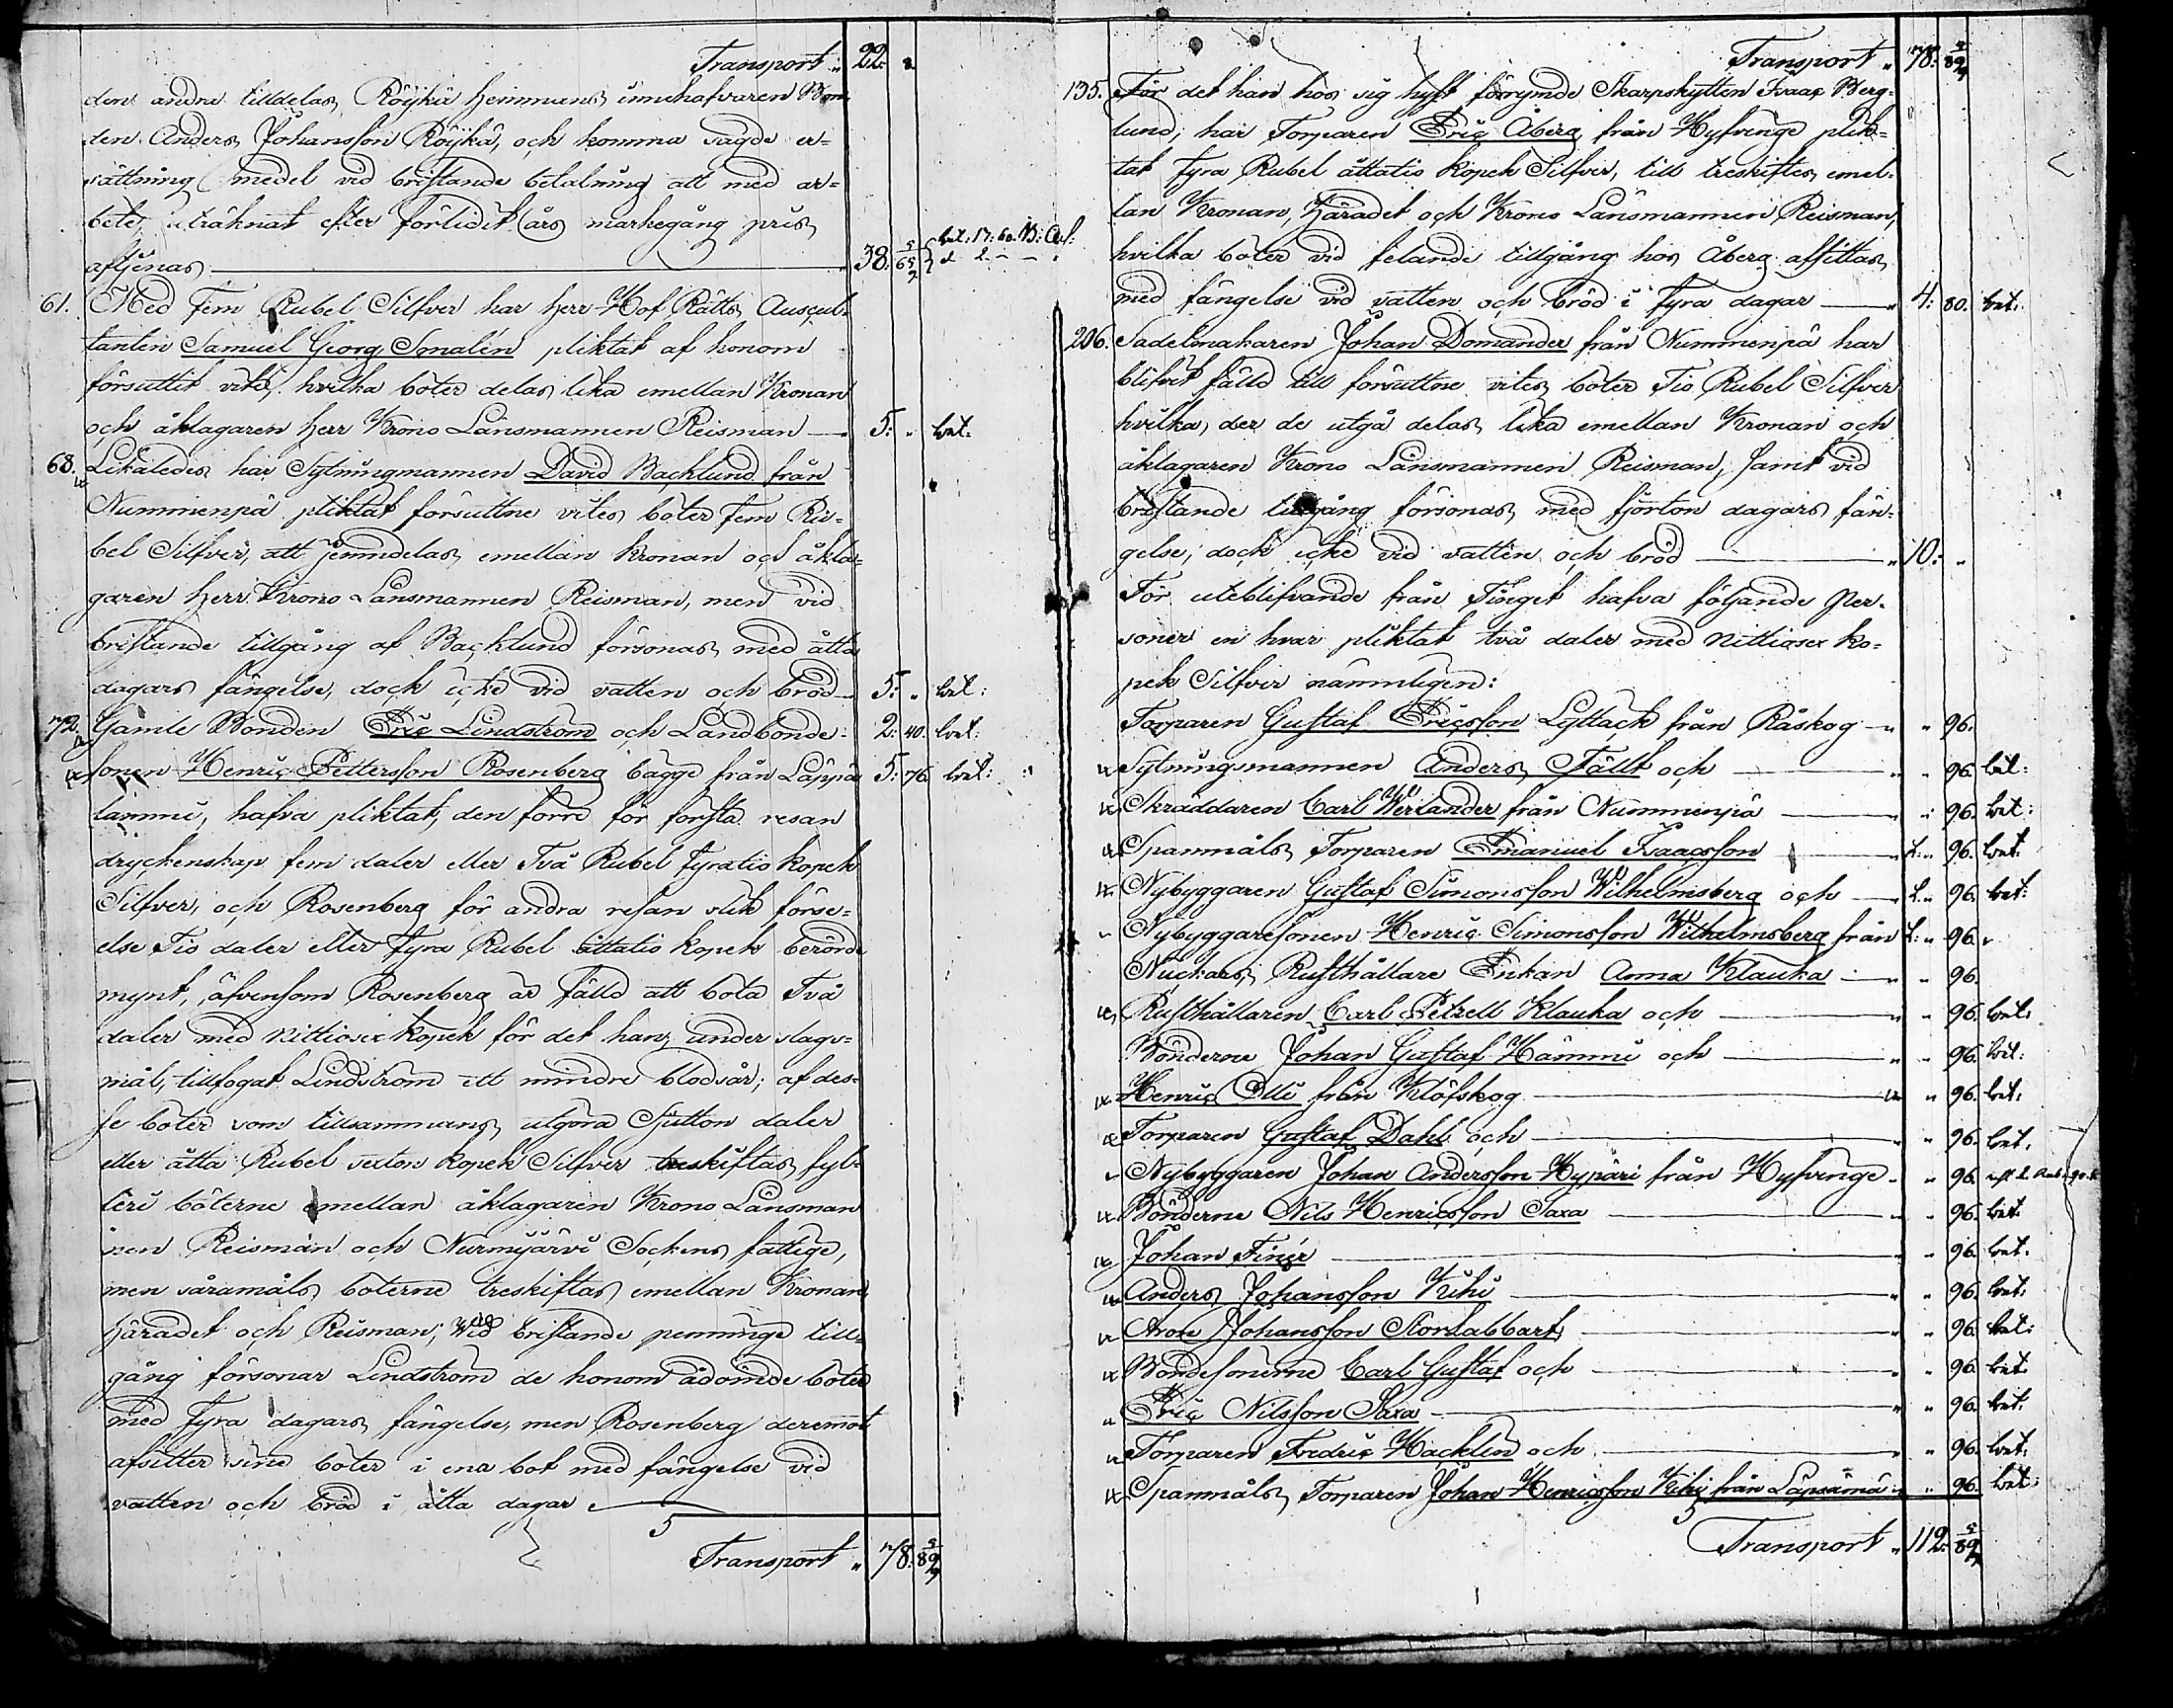 Transport " 22: 8.
den andra tilldelas Röykä Hemmans innehafvaren Bon¬
den Anders Johansson Röykä, och komma sagde er-
sättning medel vid bristande betalning att med ar-
bete, uträknat efter förlidit års markegång pris,
aftjenas 38: 65 5/7 bet. 17: 60.
61. Med Fem Rubel Silfver har Herr Hof Rätts Auscul-
tanten Samuel Georg Smalén pliktat af honom
försuttit vite, hvilka böter delas lika emellan Kronan
och åklagaren Herr Krono Länsmannen Reisman 5: " bet.
68. Likaledes har Sytningmannen David Backlund från
Nummenpä pliktat försuttne vites böter Fem Ru-
bel Silfver, att jemndelas emellan Kronan och åkla-
garen Herr Krono Länsmannen Reisman, men vid
bristande tillgång af Backlund försonas med åtta
dagars fängelse, dock icke vid vatten och bröd 5: " bet:
72. Gamle Bonden Eric Lindström och Landbonde- 2: 40. bet:
sonen Henric Pettersson Rosenberg bägge från Lappa 5: 76. bet:
lammi, hafva pliktat, den förre för första resan
dryckenskap fem daler eller Två Rubel fyratio kopek
Silfver, och Rosenberg för andra resan slik förse-
else Tio daler eller fyra Rubel åttatio kopek berörde
mynt, äfvensom Rosenberg är fälld att böta Två
daler med Nittiosex kopek för det han, under slags-
mål, tillfogat Lindström ett mindre blodsår; af des-
se böter som tillsammans utgöra Sjutton daler
eller åtta Rubel sexton kopek Silfver treskiftas fyl-
leri böterne emellan åklagaren Krono Länsman
nen Reisman och Nurmijärvi Sockens fattige,
men såramåls böterne treskiftas emellan Kronan,
Häradet och Reisman; Wid bristande penninge till-
gång försonar Lindström de honom ådömde böter
med fyra dagars fängelse, men Rosenberg deremot
afsitter sine böter i ena bot med fängelse vid
vatten och bröd i åtta dagar
Transport " 78: 89 5/7
Transport " 78: 89 5/7
135. För det han hos sig hyst förrymde Skarpskytten Isaac Berg-
lund, har Torparen Eric Åberg från Hyfvinge plik-
tat fyra Rubel åttatio kopek Silfver, till treskiftes emel-
lan Kronan, Häradet och Krono Länsmannen Reisman,
hvilka böter vid felande tillgång hos Åberg afsittas
med fängelse vid vatten och bröd i fyra dagar " 4: 80. bet.
206. Sadelmakaren Johan Domander från Nummenpä har
blifvit fälld till försuttne vites böter Tio Rubel Silfver
hvilka, der de utgå delas lika emellan Kronan och
åklagaren Krono Länsmannen Reisman, samt vid
bristande tillgång försonas med fjorton dagars fän-
gelse, dock icke vid vatten och bröd " 10: "
För uteblifvande från Tinget hafva följande Per-
soner en hvar pliktat två daler med Nittiosex ko-
pek Silfver nämnligen:
Torparen Gustaf Ericsson Lyttack från Råskog " " 96.
Sytningsmannen Anders Fällt och " " 96. bet:
Skräddaren Carl Werlander från Nummenpä " " 96. bet:
Spannmåls Torparen Emanuel Isaacsson " 96. bet.
Nybyggaren Gustaf Simonsson Wilhelmsberg och " 96. bet:
Nybyggaresonen Henric Simonsson Wilhelmsberg från " 96.
Nuckars, Rusthållare Enkan Anna Klauka " " 96.
Rusthållaren Carl Petrell Klauka och " " 96. bet.
Bönderne Johan Gustaf Hämmi och " " 96. bet:
Henric Olli från Klöfskog " " 96. bet.
Torparen Gustaf Dahl och " " 96. bet.
Nybyggaren Johan Andersson Hypäri från Hyfvinge " " 96.
Bönderne Nils Henricsson Saxa " " 96. bet.
Johan Finér " " 96. bet.
Anders Johansson Kihi " " 96. bet.
Aron Johansson Storlabbart " " 96. bet:
Bondesönerne Carl Gustaf och " " 96. bet.
Eric Nilsson Saxa " " 96. bet.
Torparen Fredric Hacklin och " " 96. bet.
Spannmåls Torparen Johan Henricsson Kihi från Lapsämä " " 96. bet:
Transport " 112: 89 5/7